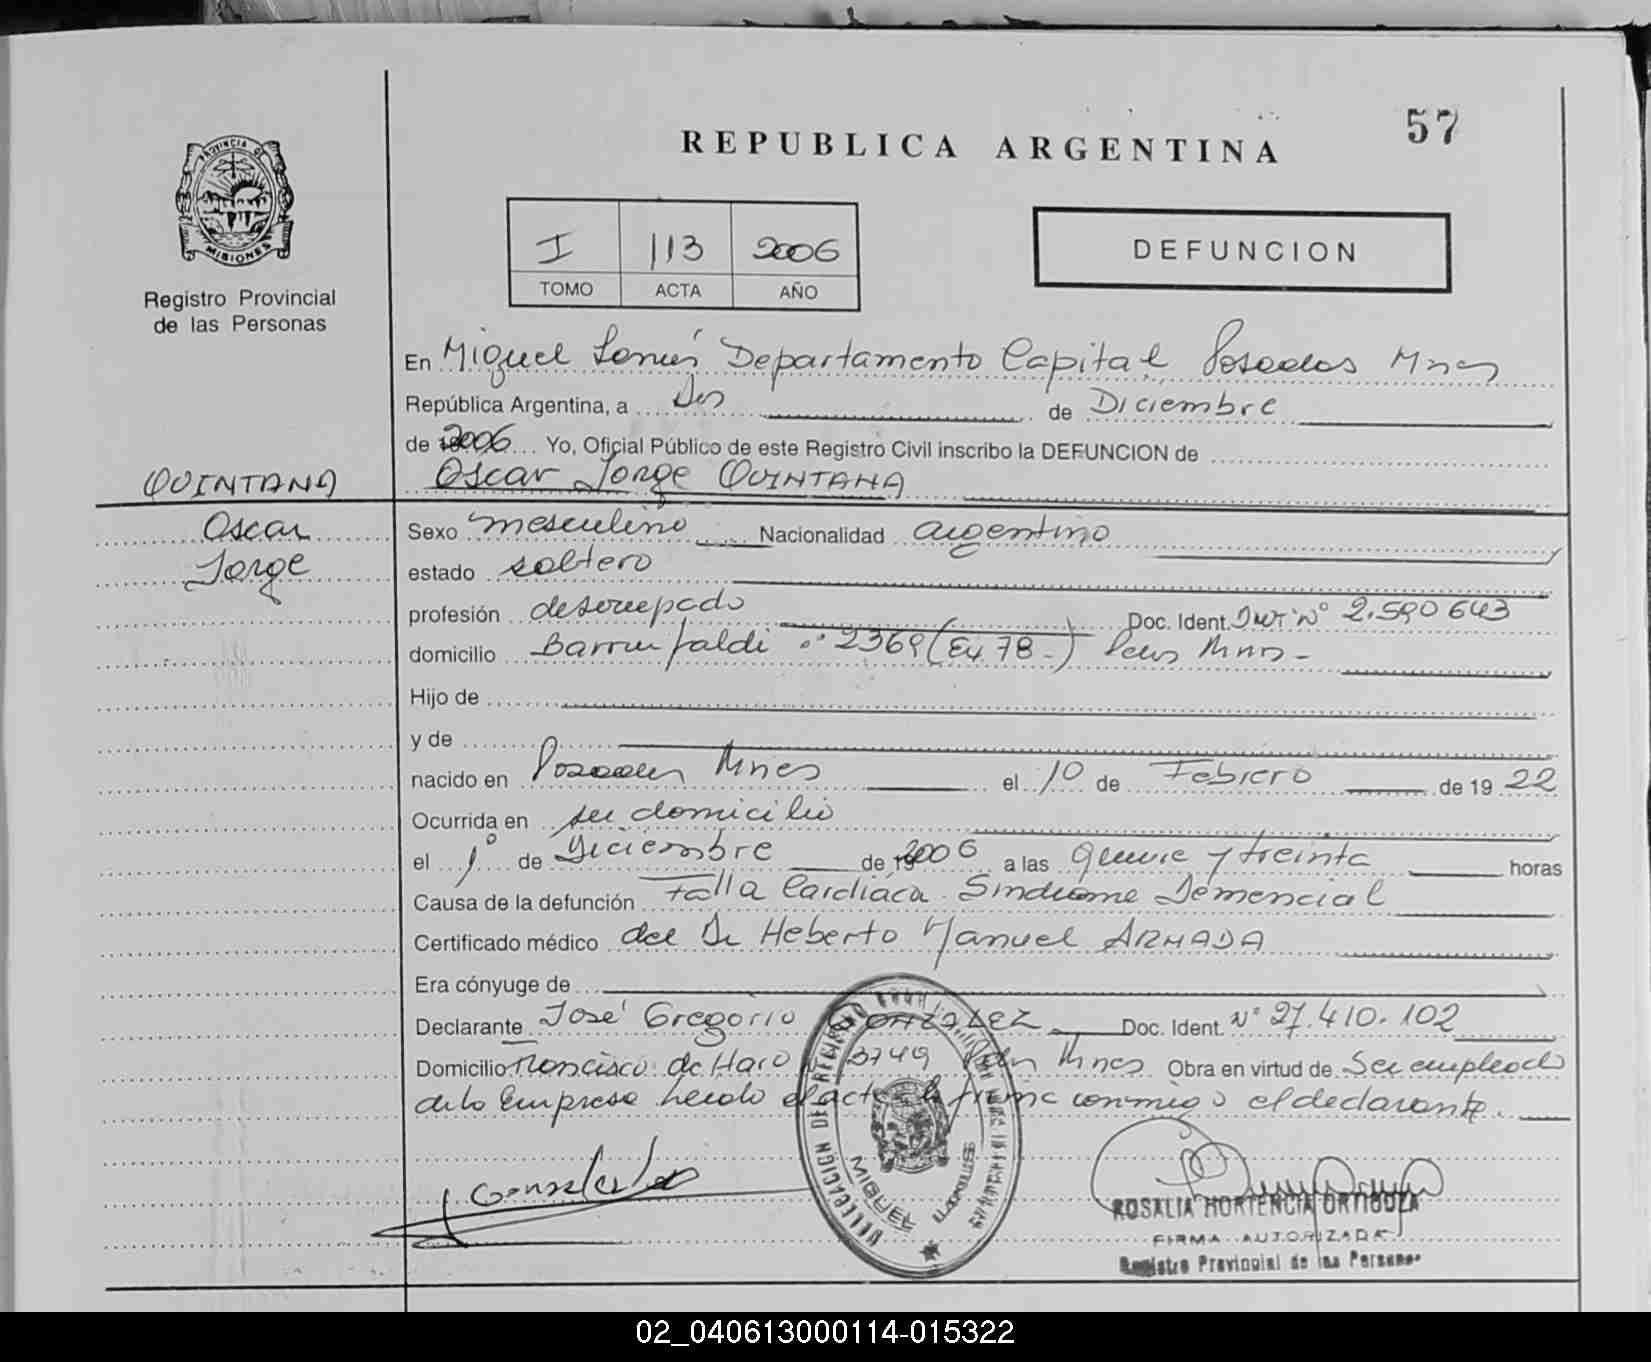 57
REPUBLICA ARGENTINA
PROVINCIA DE
MISIONES
Registro Provincial
de las Personas
I 113 2006
TOMO ACTA AÑO
DEFUNCION
En Miguel Lanús Departamento Capital Posadas Mnes
República Argentina, a Dos de Diciembre
de 2006 Yo, Oficial Público de este Registro Civil inscribo la DEFUNCION de
QUINTANA Oscar Jorge QUINTANA
Oscar Sexo masculino Nacionalidad argentino
Jorge estado soltero
profesión desocupado Doc. Ident. DNI Nº 2.590643
domicilio nº 2369 (Ex 78-) Pdas Mnes -
Hijo de
y de
nacido en Posadas Mnes el 10 de Febrero de 1922
Ocurrida en su domicilio
el 1º de Diciembre de 2006 a las quince y treinta horas
Causa de la defunción Falla Cardiaca. Sindrome Demencial
Certificado médico del Dr Heberto Manuel ARMADA
Era cónyuge de
Declarante José Gregorio GONZALEZ Doc. Ident. Nº 27.410.102
Domicilio de Haro 3749 Pdas Mnes Obra en virtud de Ser empleado
de la Empresa Leida el acta la firma conmigo el declarante.
DELEGACION DEL REGISTRO
MIGUEL LANUS
ROSALIA HORTENCIA ORTIGOZA
FIRMA AUTORIZADA
Registro Provincial de las Personas
02_040613000114-015322